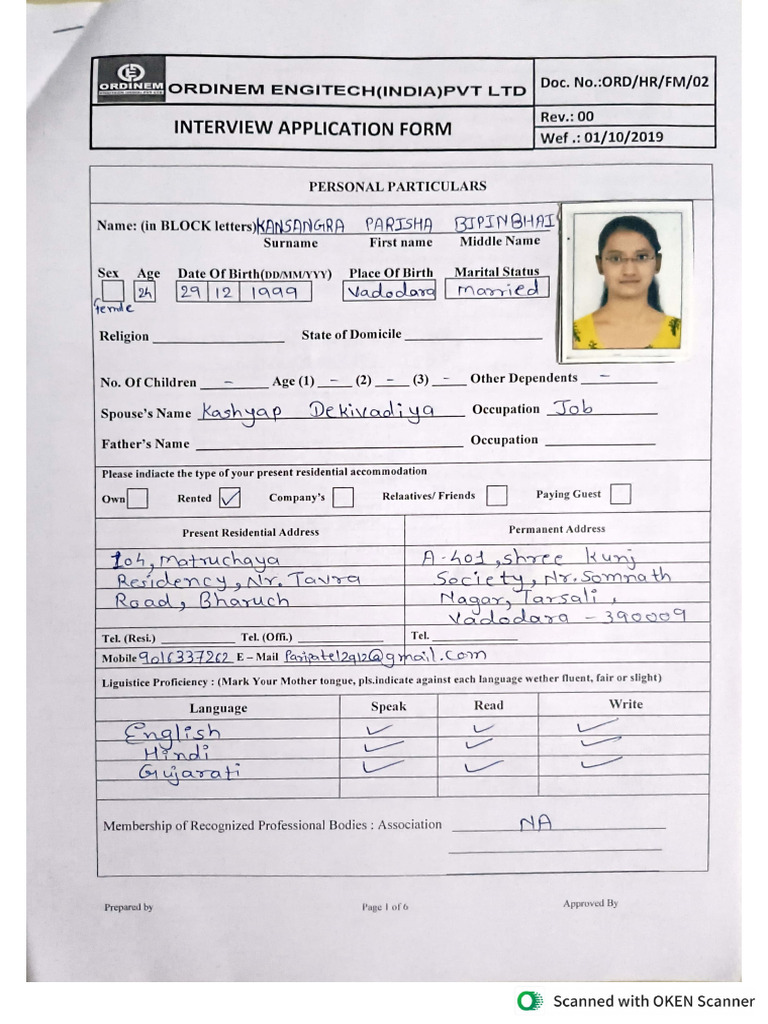 ORDINEM
ORDINEM ENGITECH(INDIA)PVT LTD
Doc. No.:ORD/HR/FM/02
INTERVIEW APPLICATION FORM
Rev.: 00
Wef .: 01/10/2019
PERSONAL PARTICULARS
Name: (in BLOCK letters) KANSANGRA PARISHA BIPINBHAI
Surname First name Middle Name
Sex Age Date Of Birth(DD/MM/YYY) Place Of Birth Marital Status
24 29 12 1999 Vadodara married
Religion State of Domicile
No. Of Children - Age (1) - (2) - (3) - Other Dependents -
Spouse's Name Kashyap Dekivadiya Occupation Job
Father's Name Occupation
Please indiacte the type of your present residential accommodation
Own Rented ✓ Company's Relaatives/ Friends Paying Guest
Present Residential Address Permanent Address
104, Matruchaya A-401, shree kunj
Residency, Nr. Tavra Society, Nr. Somnath
Road, Bharuch Nagar, Tarsali,
Vadodara - 390009
Tel. (Resi.) Tel. (Offi.) Tel.
Mobile 9016337262 E – Mail Paripatel2912@gmail.com
Liguistice Proficiency : (Mark Your Mother tongue, pls.indicate against each language wether fluent, fair or slight)
Language Speak Read Write
English ✓ ✓ ✓
Hindi ✓ ✓ ✓
Gujarati ✓ ✓ ✓
Membership of Recognized Professional Bodies : Association NA
Prepared by Page 1 of 6 Approved By
Scanned with OKEN Scanner